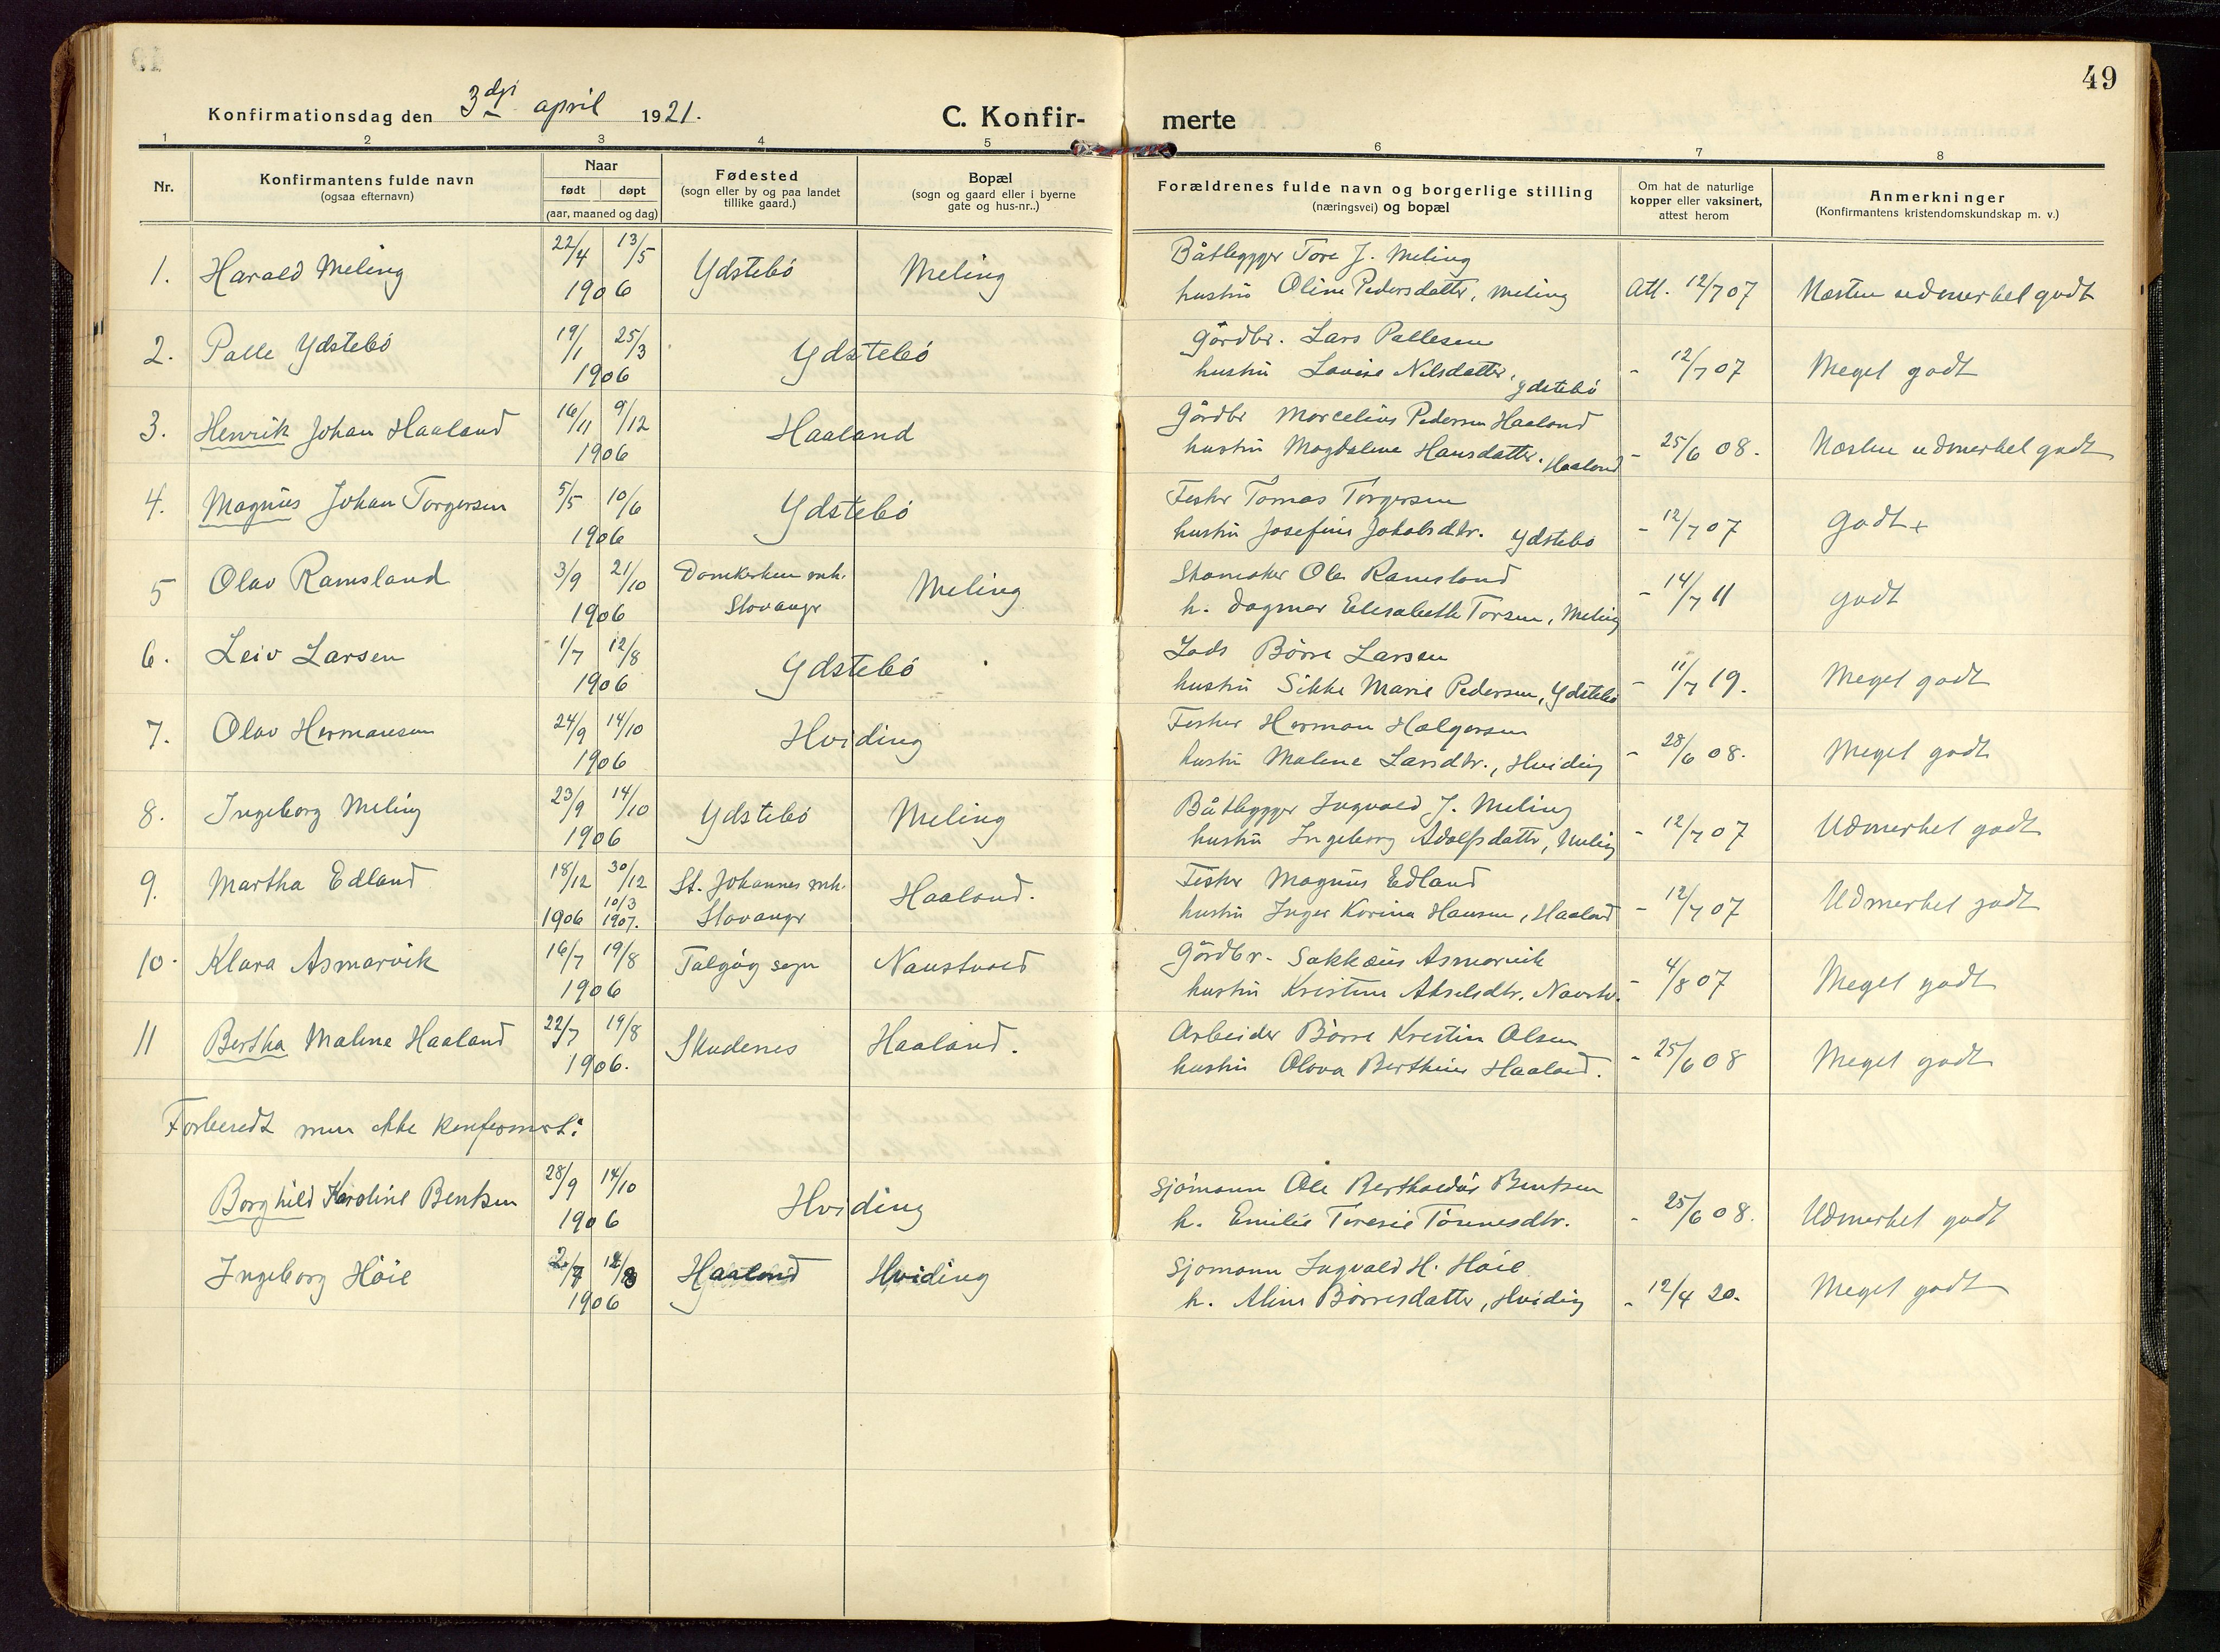 49
Konfirmationsdag den 3dje april 1921.
C. Konfirmerte
1 2 3 4 5 6 7 8
Nr.
Konfirmantens fulde navn
(ogsaa efternavn)
Naar
født døpt
(aar, maaned og dag)
Fødested
(sogn eller by og paa landet
tillike gaard.)
Bopæl
(sogn og gaard eller i byerne
gate og hus-nr..)
Forældrenes fulde navn og borgerlige stilling
(næringsvei) og bopæl
Om hat de naturlige
kopper eller vaksinert,
attest herom
Anmerkninger
(Konfirmantens kristendomskundskap m. v.)
1. Harald Meling 22/4 13/5 1906 Ydstebö Meling
Båtbygger Tore J. Meling
hustru Oline Pedersdatter, Meling Att. 12/7 07 Næsten udmerket godt
2. Palle Ydstebö 19/1 25/3 1906 Ydstebö
Gårdbr. Lars Pallesen
hustru Lovise Nilsdatter, Ydstebö - 12/7 07 Meget godt
3. Henrik Johan Haaland 16/11 9/12 1906 Haaland
Gårdbr Marcelius Pedersen Haaland
hustru Magdalene Hansdatter. Haaland - 25/6 08. Næsten udmerket godt
4. Magnus Johan Torgersen 5/5 10/6 1906 Ydstebö
Fisker Tomas Torgersen
hustru Josefine Jakobsdtr. Ydstebö - 12/7 07 Godt +
5 Olav Ramsland 3/9 21/10 1906 Domkirken mh. Stavanger Meling
Skomaker Ole Ramsland
h. Dagmar Elisabeth Torsen, Meling - 14/7 11 godt
6. Leiv Larsen 1/7 12/8 1906 Ydstebö
Lods Börre Larsen
hustru Sikke Marie Pedersen, Ydstebö - 11/7 19. Meget godt
7. Olav Hermansen 24/9 14/10 1906 Hviding
Fisker Herman Halgersen
hustru Malene Larsdtr., Hviding - 28/6 08. Meget godt
8. Ingeborg Meling 23/9 14/10 1906 Ydstebö Meling
Båtbygger Ingvald J. Meling
hustru Ingeborg Adolfsdatter, Meling - 12/7 07 Udmerket godt
9. Martha Edland 18/12 1906 30/12 10/3 1907. St. Johannes mh. Stavanger Haaland.
Fisker Magnus Edland
hustru Inger Karina Hansen, Haaland - 12/7 07 Udmerket godt
10. Klara Asmarvik 16/7 19/8 1906 Talgög sogn Naustvold
Gårdbr. Sakkæus Asmarvik
hustru Kristine Akselsdtr. - 4/8 07 Meget godt
11 Bertha Malene Haaland 22/7 19/8 1906. Skudenes Haaland.
Arbeider Börre Kristin Olsen
hustru Olava Berthine Haaland. - 25/6 08 Meget godt
Forberedt men ikke konfirmert:
Borghild Karoline Bentsen 28/9 14/10 1906 Hviding
Sjömann Ole Bertholdus Bentsen
h. Emilie Teresie Tönnesdtr. - 25/6 08. Udmerket godt
Ingeborg Höie 1906 Haaland Hviding
Sjömann Ingvald H. Höie
h. Aline Börresdatter, Hviding - 12/4 20. Meget godt